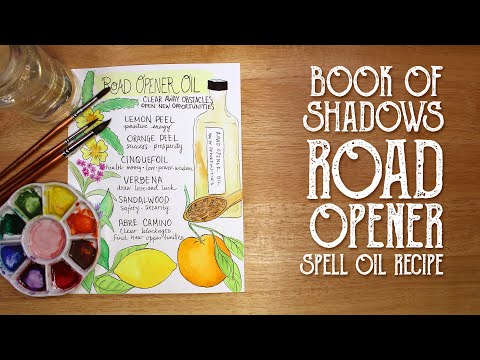 ROAD OPENER OIL
CLEAR AWAY OBSTACLES
OPEN NEW OPPORTUNITIES
LEMON PEEL
positive energy
ORANGE PEEL
success · prosperity
CINQUEFOIL
health · money · love · power · wisdom
VERBENA
draw love and luck
SANDALWOOD
safety · security
ABRE CAMINO
clear blockages
find new opportunities
ROAD OPENER OIL
BOOK OF
SHADOWS
ROAD
OPENER
SPELL OIL RECIPE